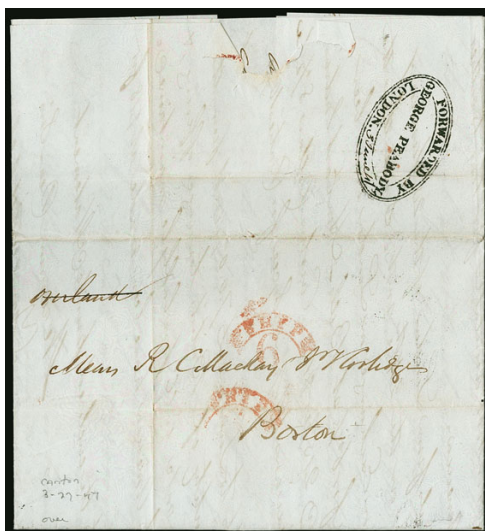 FORWARDED BY
GEORGE PEABODY
LONDON.
overland
SHIP
6
Messrs R C Mackay &
Boston
canton
3-29-47
over